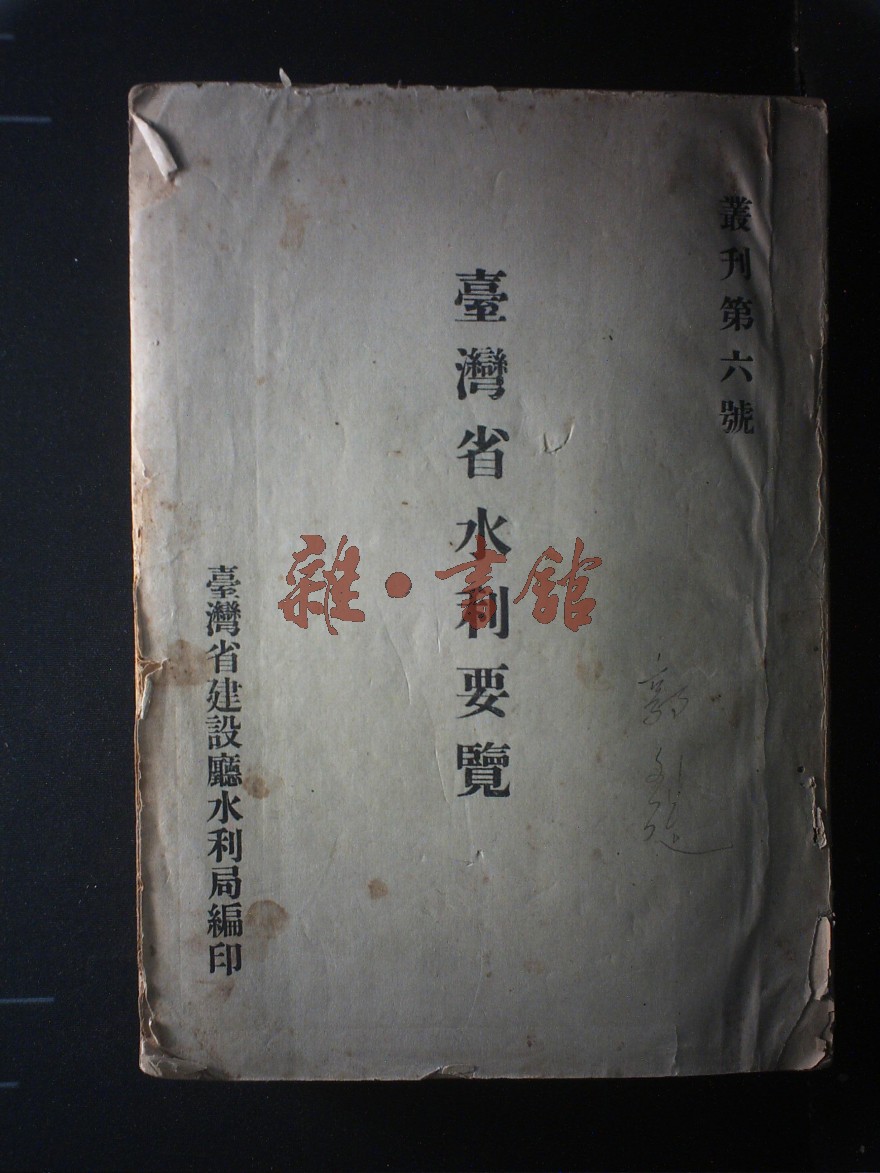 叢刊第六號
臺灣省水利要覽
臺灣省建設廳水利局編印
雜·書館